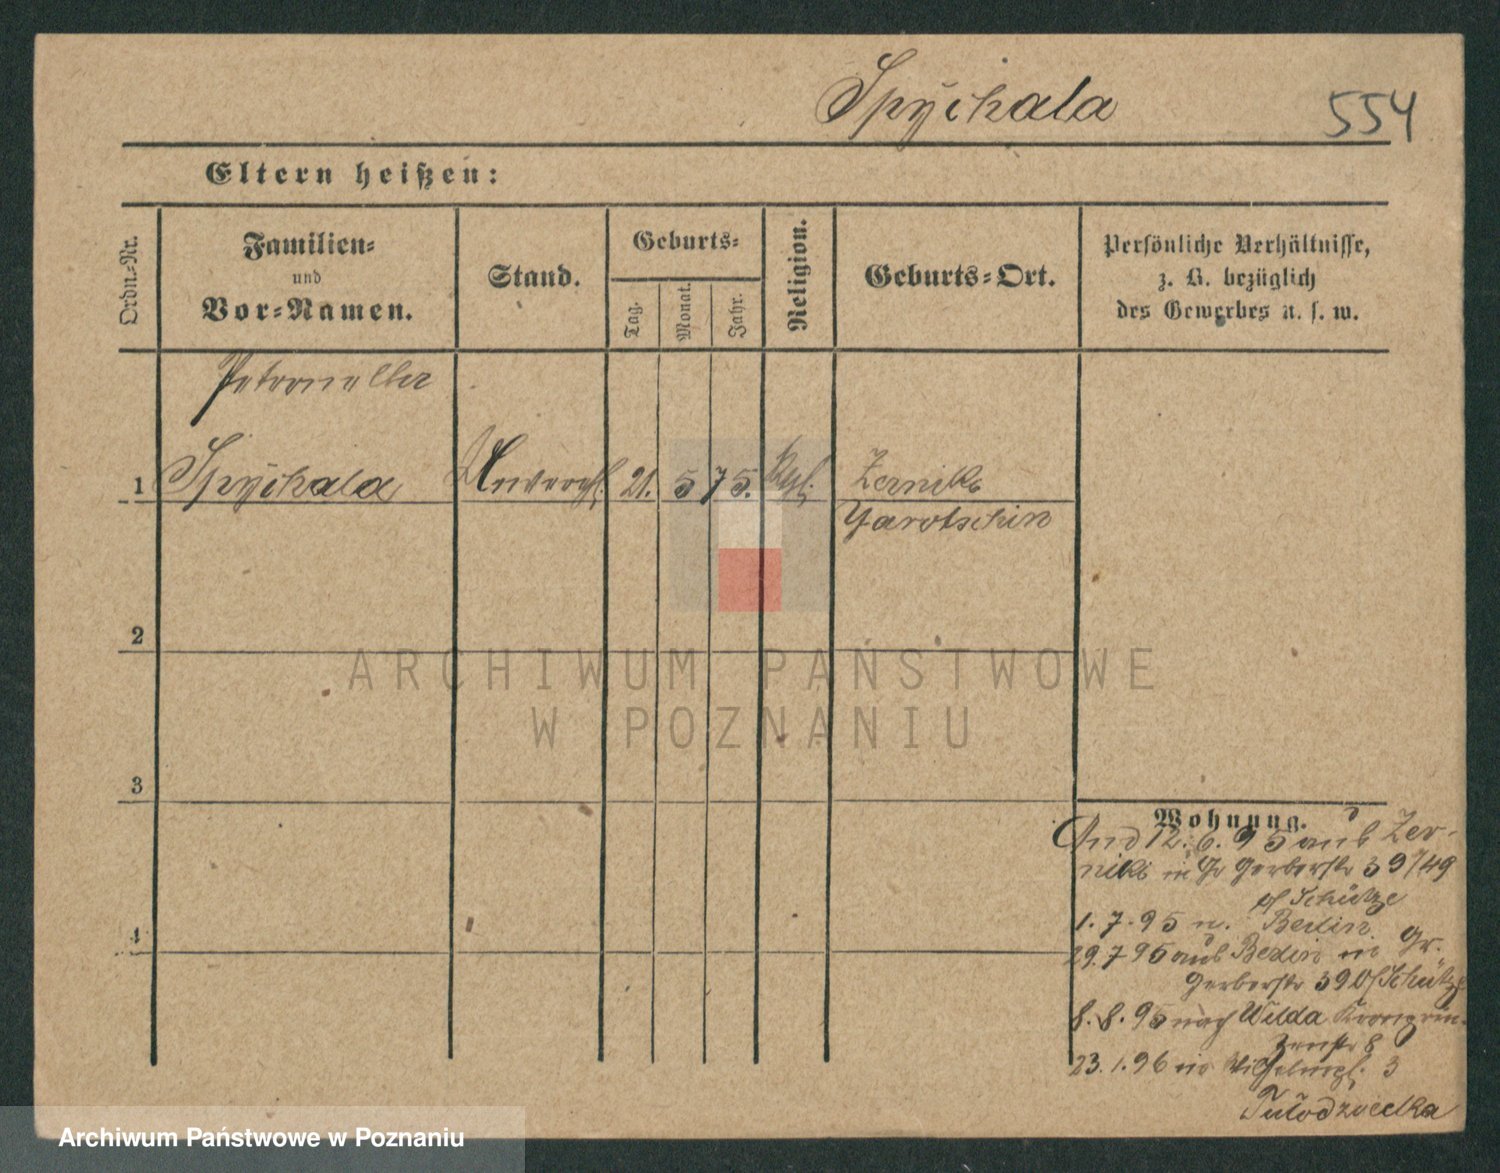 Spÿchala
554
Eltern heißen:
Ordn.-Nr.
Familien-
und
Vor-Namen.
Stand.
Geburts-
Tag.
Monat.
Jahr.
Religion.
Geburts-Ort.
Persönliche Verhältnisse,
z. B. bezüglich
des Gewerbes u. s. w.
Petronella
1 Spÿchala Unverehl. 21. 5 75. Zerniki
Jarotschin
2
3
4
ARCHIWUM PAŃSTWOWE
W POZNANIU
Wohnung.
12. 6. 95 aus Zer-
niki in Gr Gerberstr 39/49
Schütze
1. 7. 95 n. Berlin
29. 7 95 aus Berlin in Gr.
Gerberstr 39 Schütze
8. 8. 95 nach Wilda Kronprin-
zenstr 8
23. 1. 96 in Wilhelmspl. 3
Tulodziecka
Archiwum Państwowe w Poznaniu